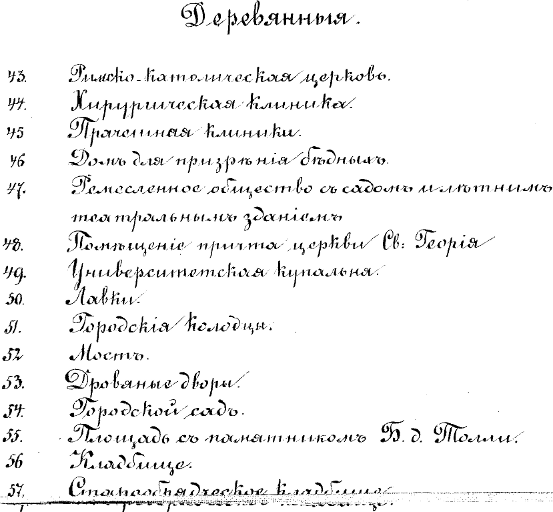 Деревянныя.
43. Римско-католическая церковь.
44. Хирургическая клиника.
45 Прачешная клиники.
46 Домъ для призрѣнія бѣдныхъ.
47. Ремесленное общество съ садомъ и лѣтнимъ
театральнымъ зданіемъ
48. Помѣщеніе причта церкви Св: Георія
49. Университетская купальна.
50. Лавки.
51. Городскія колодцы.
52 Мостъ.
53. Дровяные дворы.
54. Городской садъ.
55. Площадь съ памятникомъ Б. д. Толли.
56 Кладбище.
57. Старообрядческое кладбище.